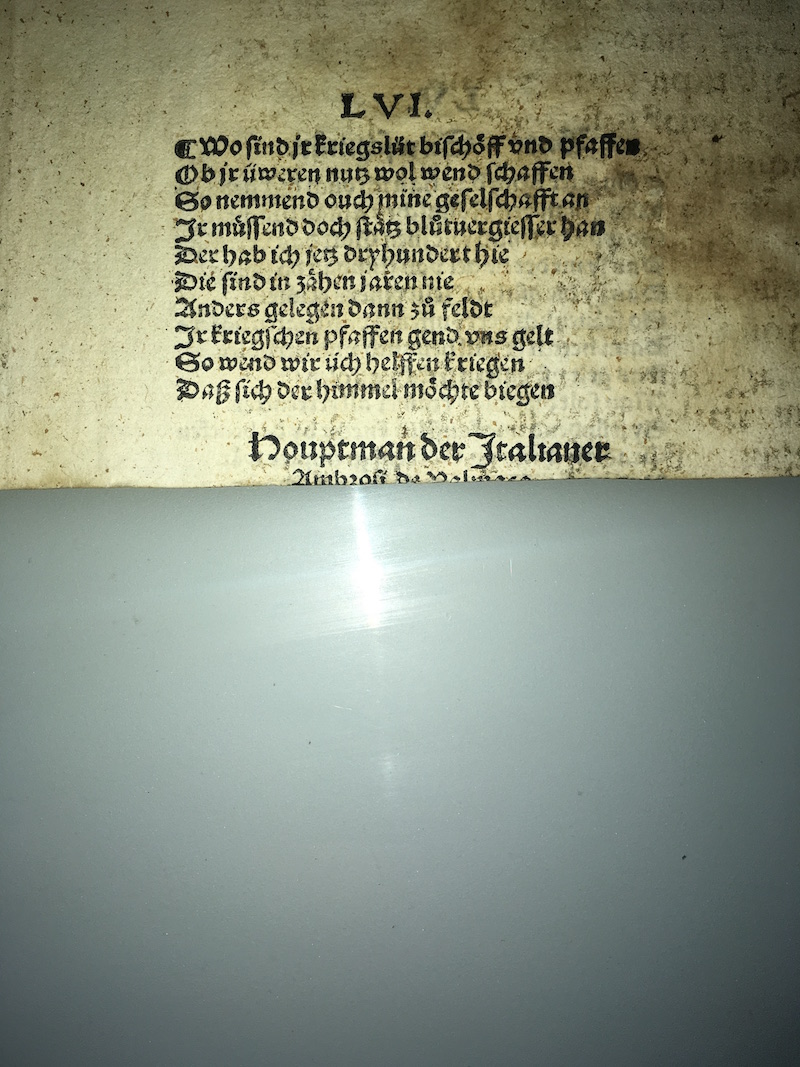 LVI.
¶ Wo sind jr kriegslüt bischöff vnd pfaffen
Ob jr üweren nutz wol wend schaffen
So nemmend ouch mine geselschafft an
Jr müssend doch stätz blůtuergiesser han
Der hab ich jetz dryhundert hie
Die sind in zähen jaren nie
Anders gelegen dann zů feldt
Jr kriegschen pfaffen gend vns gelt
So wend wir üch helffen kriegen
Daß sich der himmel möchte biegen
Houptman der Italianer
Ambrosi de